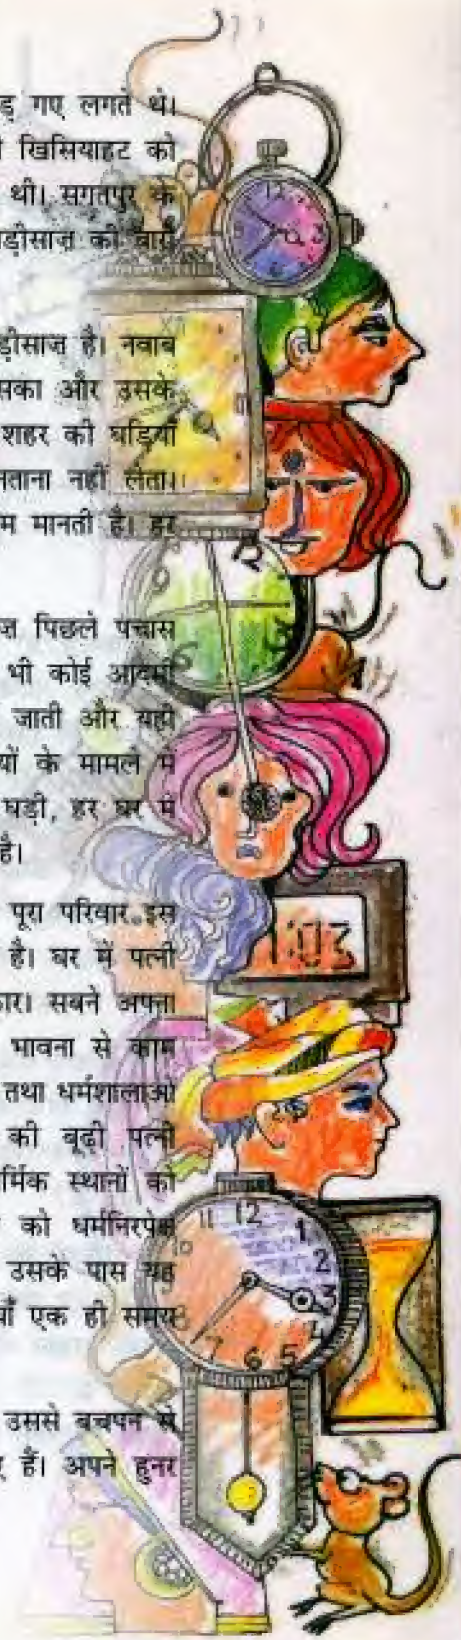 ड़ गए लगते थे।
खिसियाहट को
थी। सगतपुर के
ड़ीसाज़ की
ड़ीसाज़ है। नवाब
सका और उसके
शहर की घड़ियाँ
नताना नहीं लेता।
म मानती है। हर
पिछले पचास
भी कोई आदमी
जाती और यही
यों के मामले में
घड़ी, हर घर में
है।
पूरा परिवार इस
है। घर में पत्नी
कार। सबने अपना
भावना से काम
तथा धर्मशालाओं
की बूढ़ी पत्नी
र्मिक स्थानों को
को धर्मनिरपेक्ष
उसके पास यह
याँ एक ही समय
उससे बचपन से
हैं। अपने हुनर
12
3
12
1:03
11 12 1
10 2
3
4
7 6 5